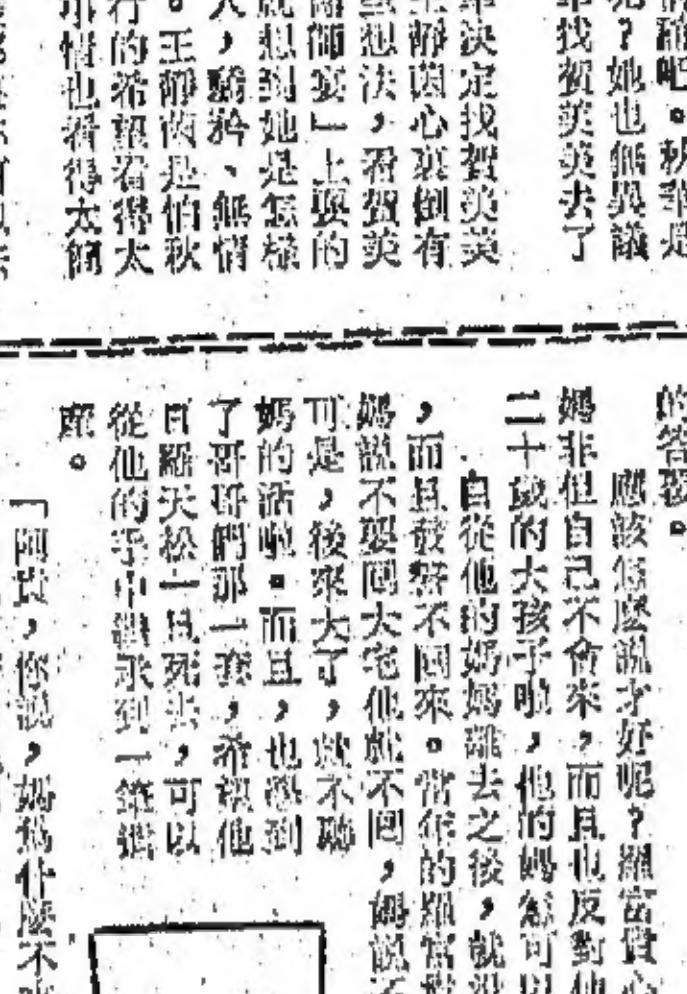 誰吧。秋華是
呢?她也無異議
找賀英英去了
決定找賀英英
靜茵心裏倒有
想法,看賀英
謝師宴」上耍的
就想到她是怎樣
人,驕矜、無情
。王靜茵是怕秋
行的希望看得太
情也看得太
的答
應該怎麼說才好呢?羅富貴心
媽非但自己不會來,而且也反對他
二十歲的大孩子啦,他的媽怎可以
自從他的媽媽離去之後,就
,而且發誓不回來。當年的羅富貴
媽說不要回大宅他就不回,媽說
可是,後來大了,就不聽
媽的話啦。而且,也學到
了哥哥們那一套,希望他
日羅天松一旦死去,可以
從他的手中繼承到一筆
產。
「阿貴,你說,媽為什麼不